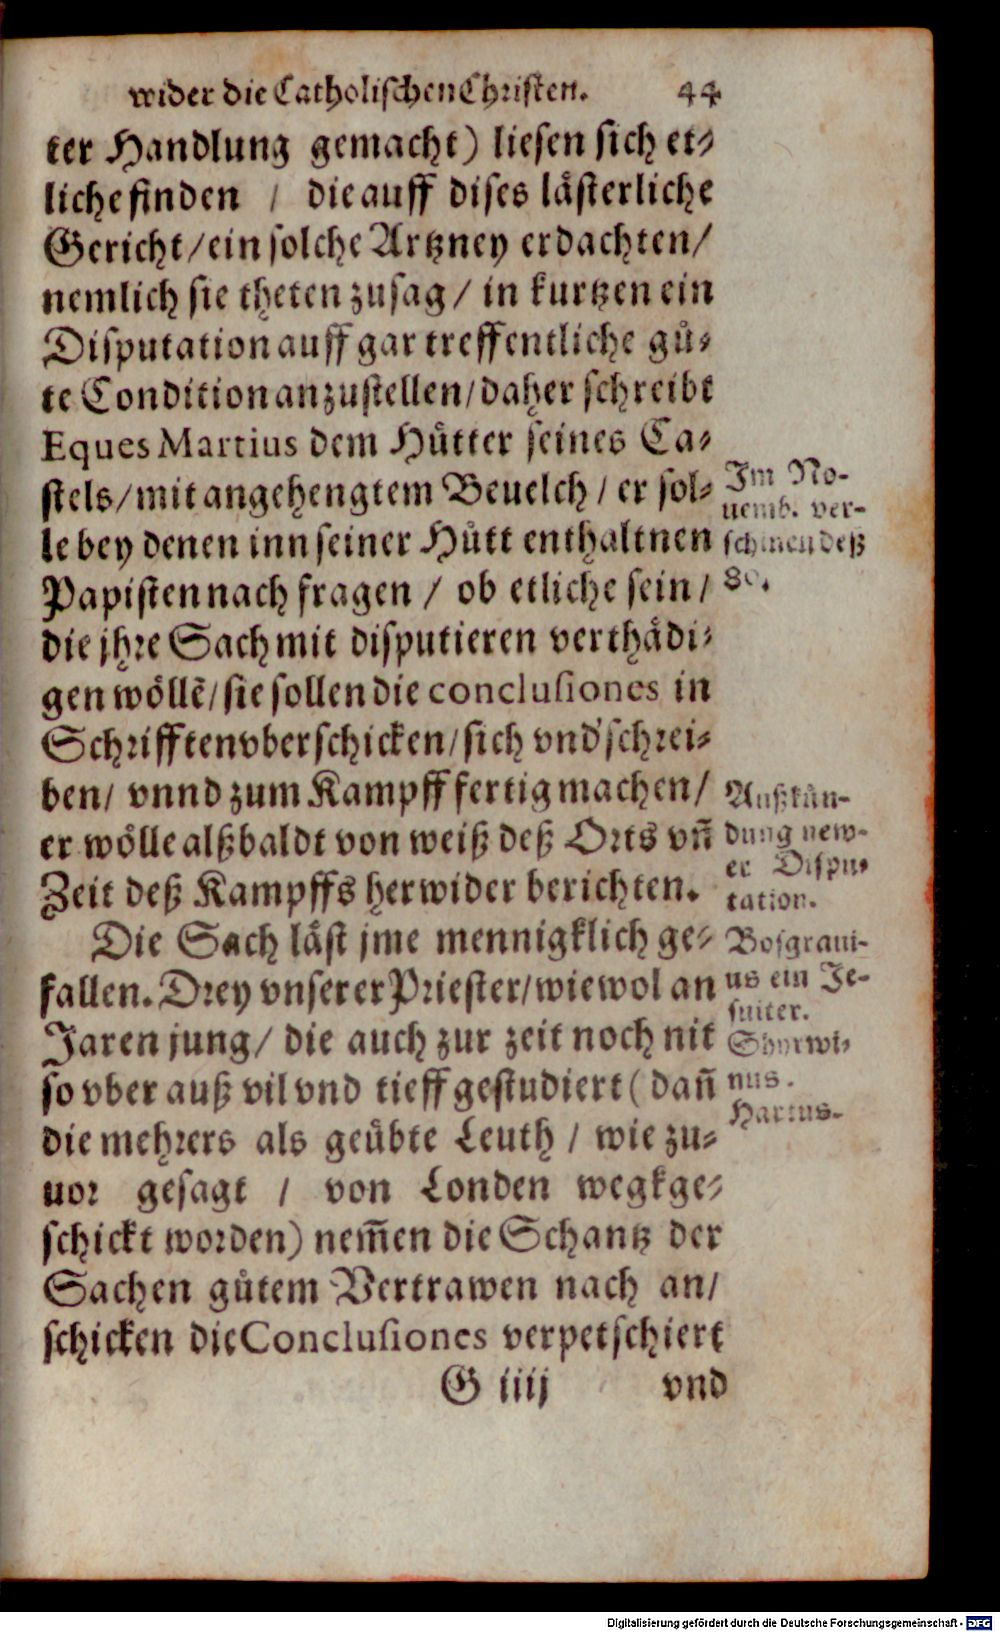 wider die Catholischen Christen. 44
ter Handlung gemacht) liesen sich et⸗
liche finden / die auff dises lästerliche
Gericht / ein solche Artzney erdachten /
nemlich sie theten zusag / in kurtzen ein
Disputation auff gar treffentliche gů⸗
te Condition anzustellen / daher schreibt
Eques Martius dem Hütter seines Ca⸗
stels / mit angehengtem Beuelch / er sol⸗
le bey denen inn seiner Hütt enthaltnen
Papisten nach fragen / ob etliche sein /
die jhre Sach mit disputieren verthädi⸗
gen wöllẽ / sie sollen die conclusiones in
Schrifften vberschicken / sich vnd schrei⸗
ben / vnnd zum Kampff fertig machen /
er wölle alßbaldt von weiß deß Orts vñ
Zeit deß Kampffs herwider berichten.
Die Sach läst jme mennigklich ge⸗
fallen. Drey vnserer Priester / wiewol an
Jaren jung / die auch zur zeit noch nit
so vber auß vil vnd tieff gestudiert (dañ
die mehrers als geübte Leuth / wie zu⸗
uor gesagt / von Londen wegkge⸗
schickt worden) nem̃en die Schantz der
Sachen gůtem Vertrawen nach an /
schicken die Conclusiones verpetschiert
G iiij vnd
Im No-
uemb. ver-
schinen deß
80.
Außkün-
dung new-
er Dispu⸗
tation.
Bosgraui-
us ein Je-
suiter.
Shyrwi⸗
nus.
Hartus.
Digitalisierung gefördert durch die Deutsche Forschungsgemeinschaft - DFG